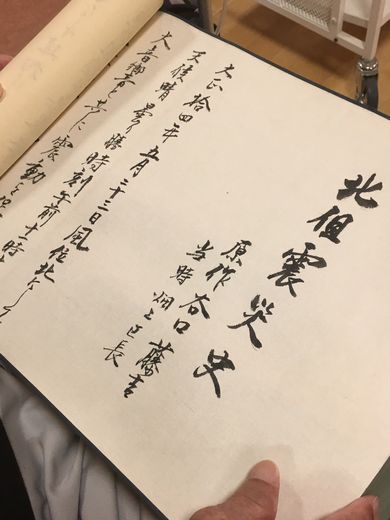 北但震災史
原作 谷口 藤吉
当時 畑上区長
大正拾四年五月二十三日風位北
天候晴 曇り勝 時刻午前十一時
大音響 共に震動を